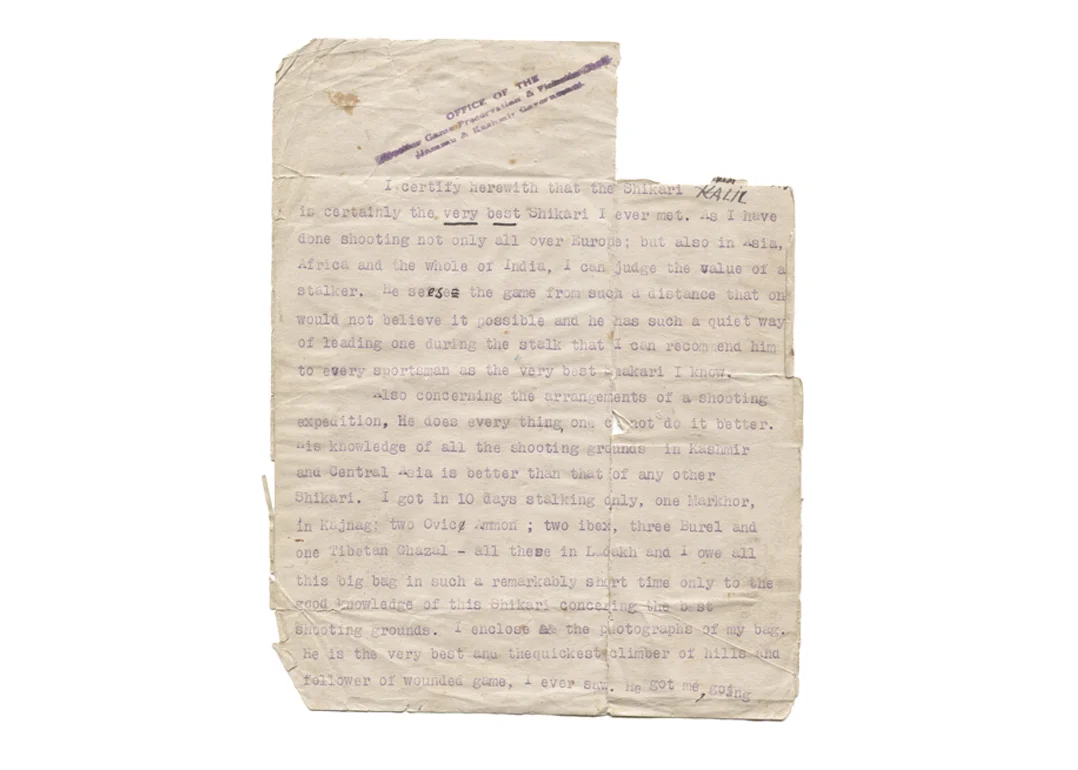 OFFICE OF THE
Game Preservation &
& Kashmir Government.
I certify herewith that the Shikari KALIL
is certainly the very best Shikari I ever met. As I have
done shooting not only all over Europe; but also in Asia,
Africa and the whole of India, I can judge the value of a
stalker. He sees the game from such a distance that on
would not believe it possible and he has such a quiet way
of leading one during the stalk that I can recommend him
to every sportsman as the very best Shakari I know.
Also concerning the arrangements of a shooting
expedition, He does every thing, one cannot do it better.
His knowledge of all the shooting grounds in Kashmir
and Central Asia is better than that of any other
Shikari. I got in 10 days stalking only, one Markhor,
in Kajnag; two Ovice Ammon ; two ibex, three Burel and
one Tibetan Ghazal - all these in Ladakh and I owe all
this big bag in such a remarkably short time only to the
good knowledge of this Shikari concering the best
shooting grounds. I enclose the photographs of my bag.
He is the very best and thequickest climber of hills and
follower of wounded game, I ever saw. He got me, going